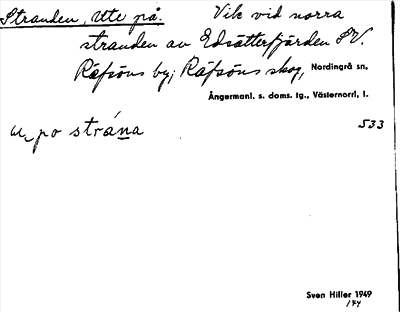 Stranden, Ute på. Vik vid norra
stranden av Edsätterfjärden SV.
Räfsöns by; Räfsöns skog, Nordingrå sn,
Ångermanl. s. doms. tg., Västernorrl. l.
po strána
533
Sven Hiller 1949